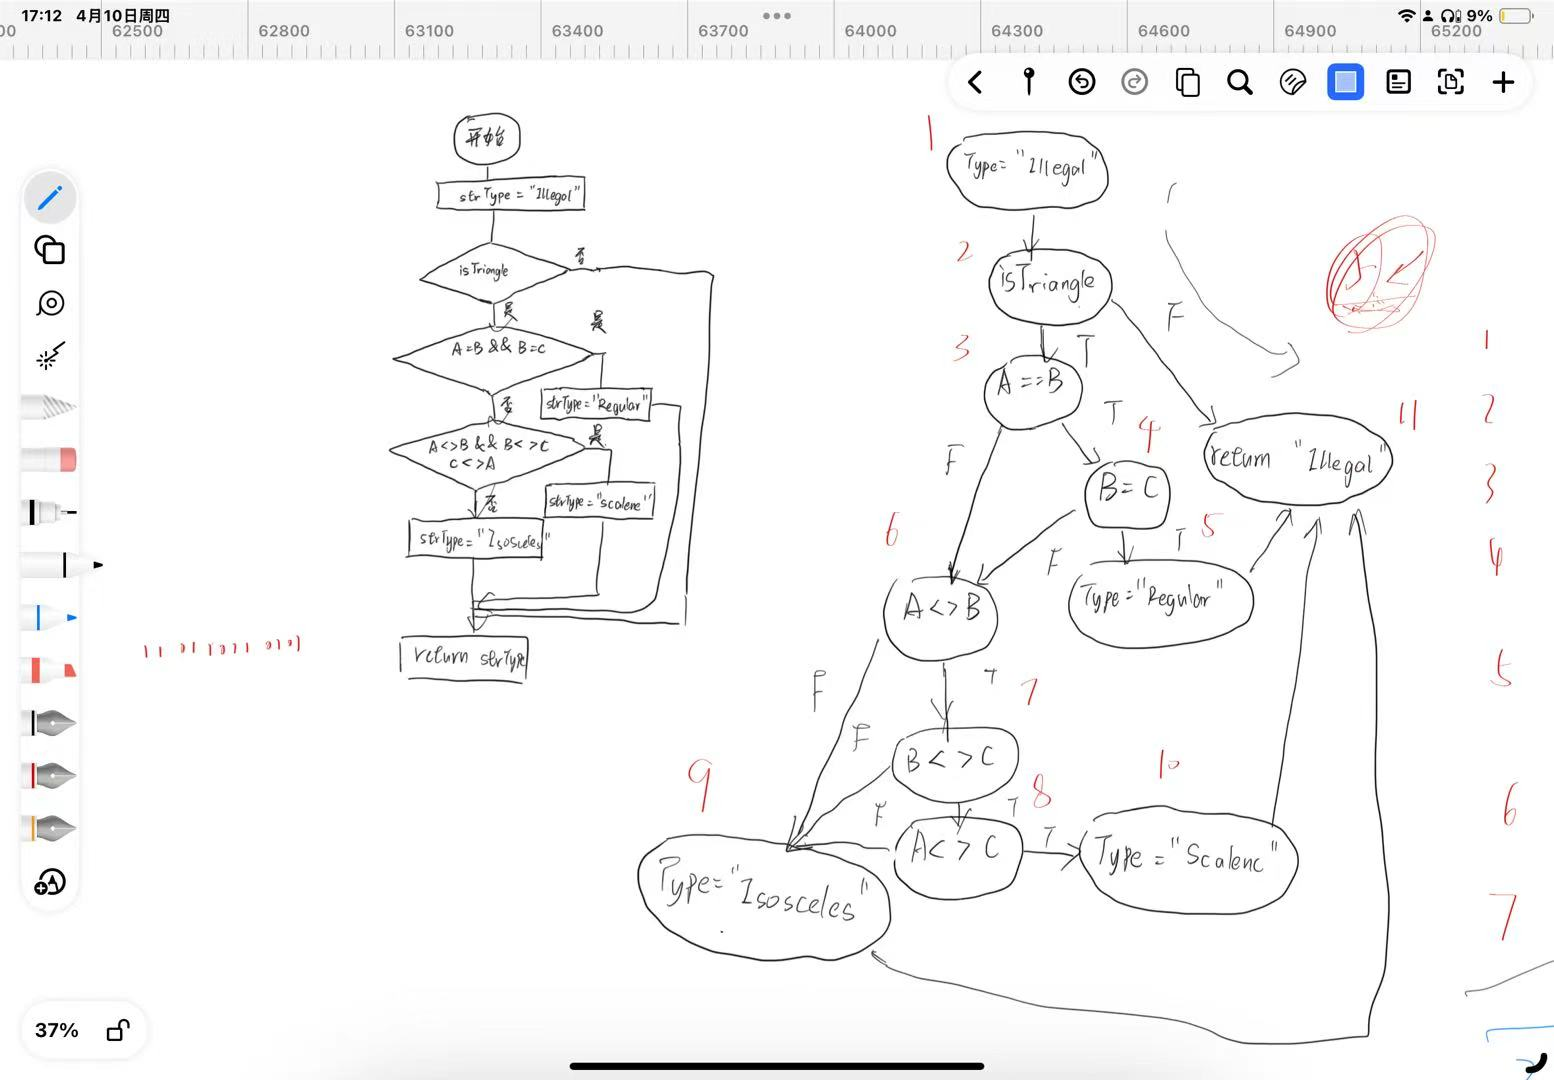 17:12 4月10日周四
9%
00 62500 62800 63100 63400 63700 64000 64300 64600 64900 65200
开始
strType = "Illegal"
isTriangle
否
是
A=B && B=C
是
否
strType="Regular"
A<>B && B<>C
C<>A
是
否
strType="scalene"
strType="Isosceles"
return strType
1
Type="Illegal"
2
isTriangle
F
3
T
A==B
T
4
F
B=C
return "Illegal"
11
6
F
T
5
A<>B
Type="Regular"
F
T
7
F
B<>C
9
F
T
8
10
A<>C
T
Type="Scalene"
Type="Isosceles"
1
2
3
4
5
6
7
37%